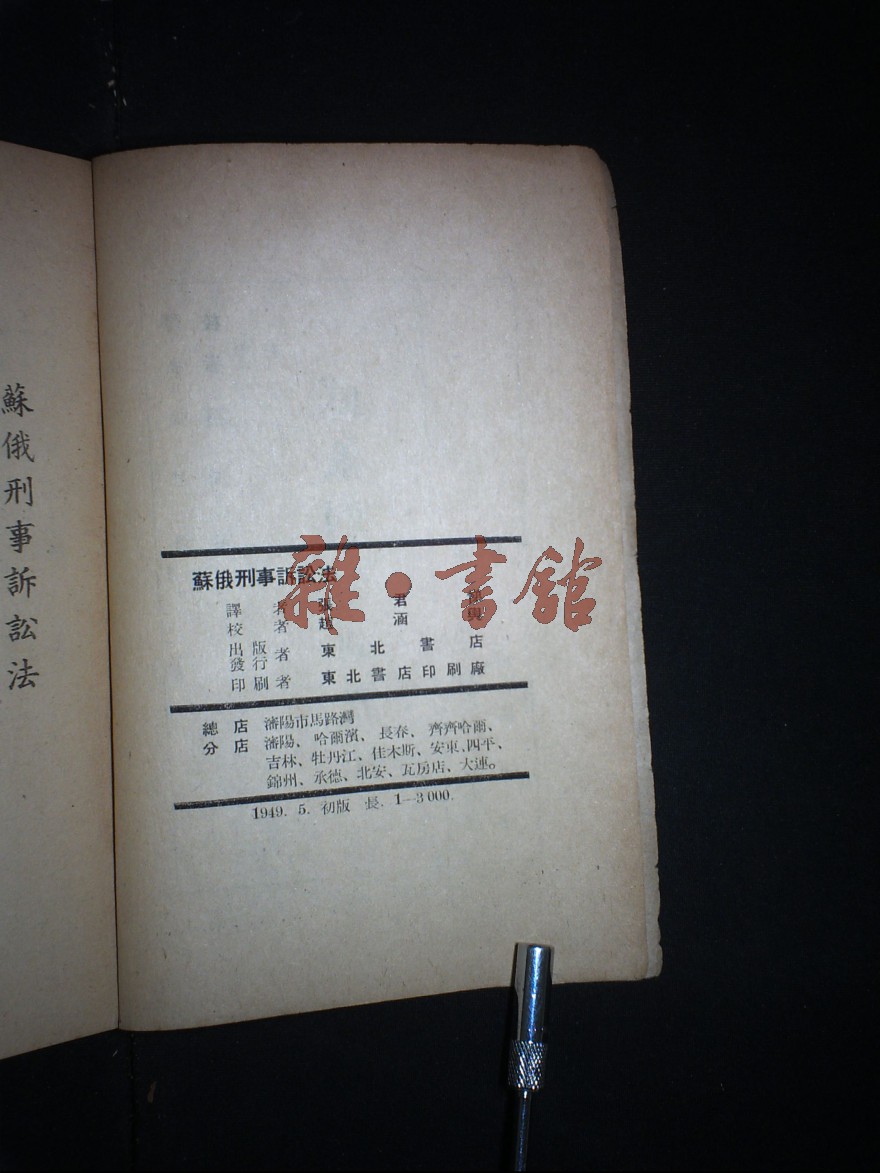 蘇俄刑事訴訟法
雜·書館
蘇俄刑事訴訟法
譯者 張君悌
校者 趙涵輿
出版
發行者 東北書店
印刷者 東北書店印刷廠
總店 瀋陽市馬路灣
分店 瀋陽、哈爾濱、長春、齊齊哈爾、
吉林、牡丹江、佳木斯、安東、四平、
錦州、承德、北安、瓦房店、大連。
1949. 5. 初版 長. 1—3000.